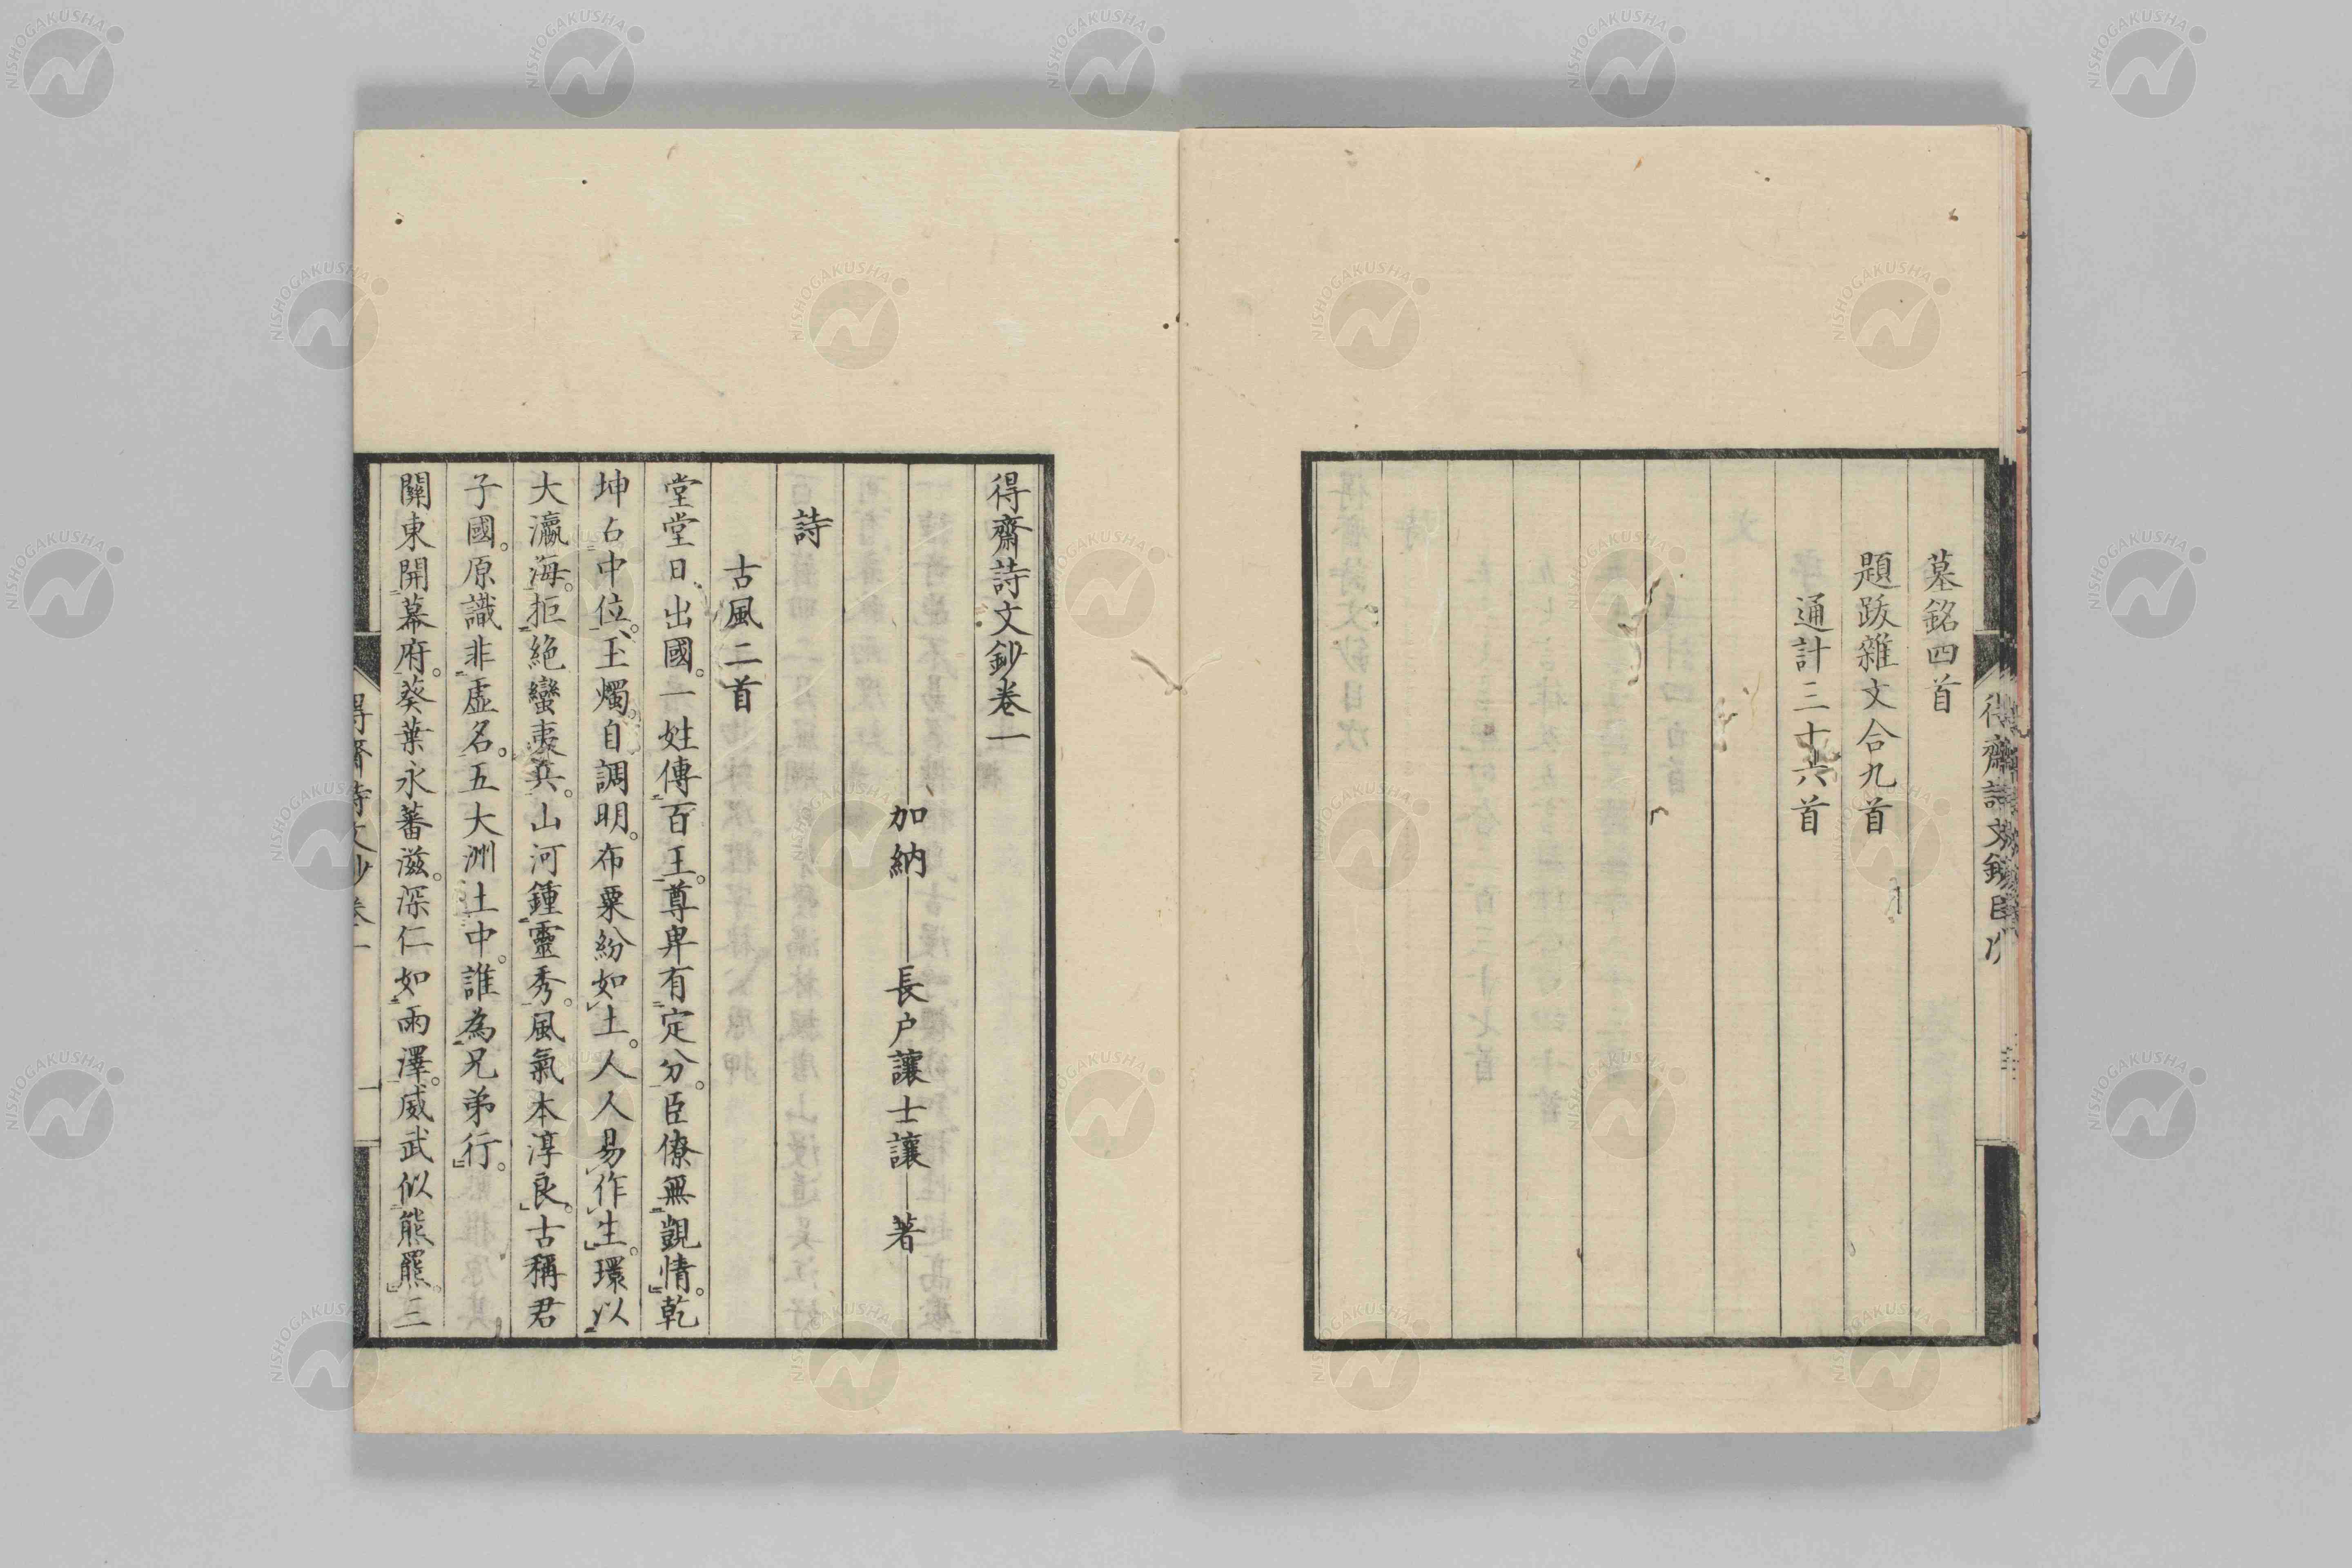 墓銘四首
題跋雜文合九首
通計三十六首
得齋詩文鈔卷一
加納 長戸讓士讓 著
詩
古風二首
堂堂日出國。一姓傳百王。尊卑有定分。臣僚無覬情。乾
坤占中位。玉燭自調明。布粟紛如土。人人易作生。環以
大瀛海。拒絕蠻夷兵。山河鍾靈秀。風氣本淳良。古稱君
子國。原識非虛名。五大洲土中。誰為兄弟行。
關東開幕府。葵葉永蕃滋。深仁如雨澤。威武似熊羆。二
得齋詩文鈔卷一
NISHOGAKUSHA